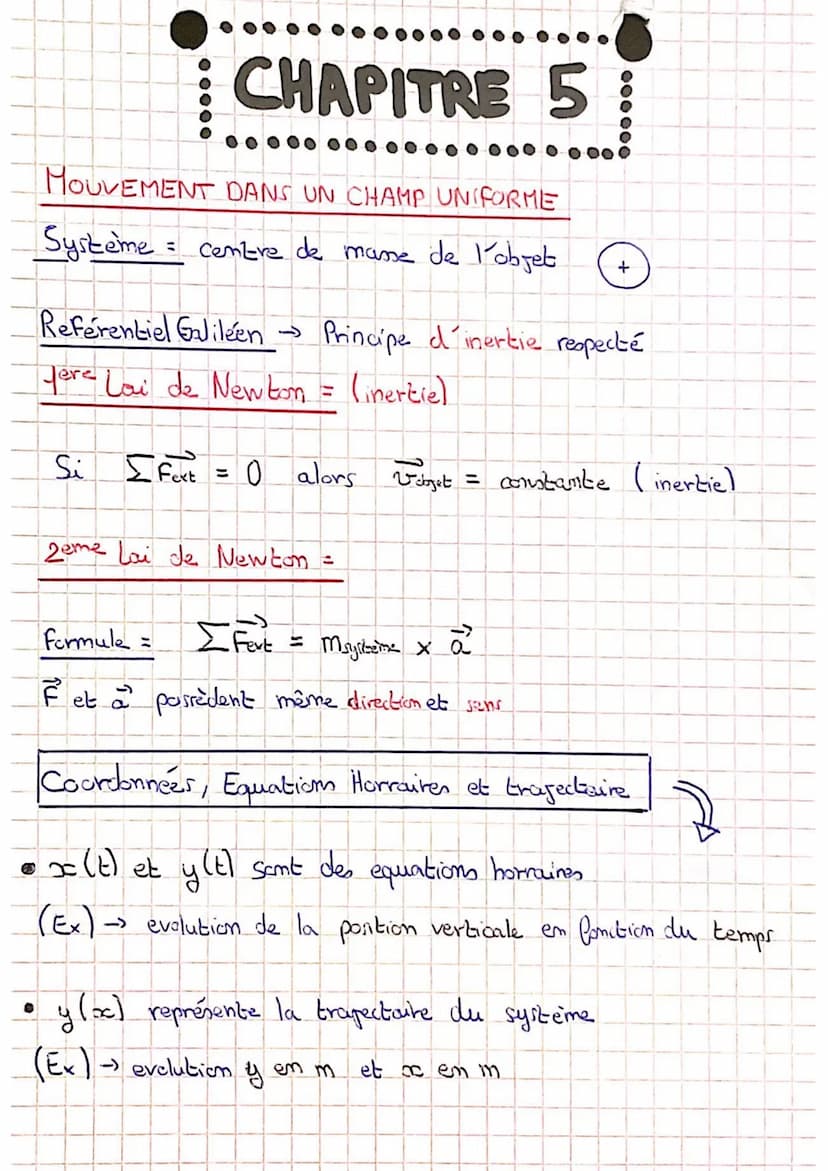 CHAPITRE 5
MOUVEMENT DANS UN CHAMP UNIFORME
Système = centre de masse de l'objet +
Reférentiel Galiléen → Principe d'inertie respecté
1ere Loi de Newton = (inertie)
Si Σ F⃗ext = 0 alors v⃗objet = constante (inertie)
2eme Loi de Newton =
formule = Σ F⃗ext = msystème × a⃗
F⃗ et a⃗ possèdent même direction et sens
Coordonnées, Equations Horraires et trajectoire
• x(t) et y(t) sont des equations horraires
(Ex) → evolution de la position verticale en fonction du temps
• y(x) représente la trajectoire du système
(Ex) → evolution y en m et x en m